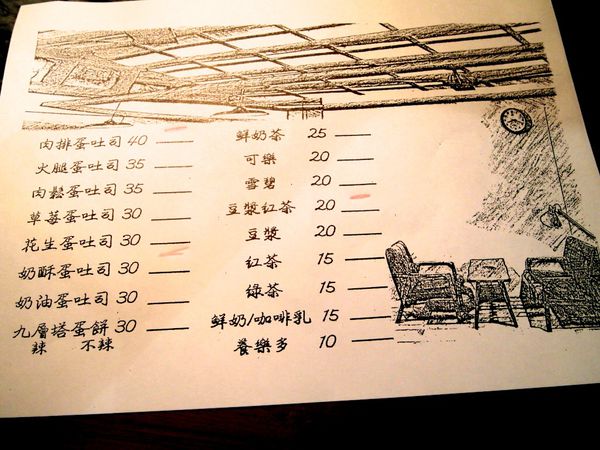 肉排蛋吐司 40
火腿蛋吐司 35
肉鬆蛋吐司 35
草莓蛋吐司 30
花生蛋吐司 30
奶酥蛋吐司 30
奶油蛋吐司 30
九層塔蛋餅 30
辣 不辣
鮮奶茶 25
可樂 20
雪碧 20
豆漿紅茶 20
豆漿 20
紅茶 15
綠茶 15
鮮奶/咖啡乳 15
養樂多 10